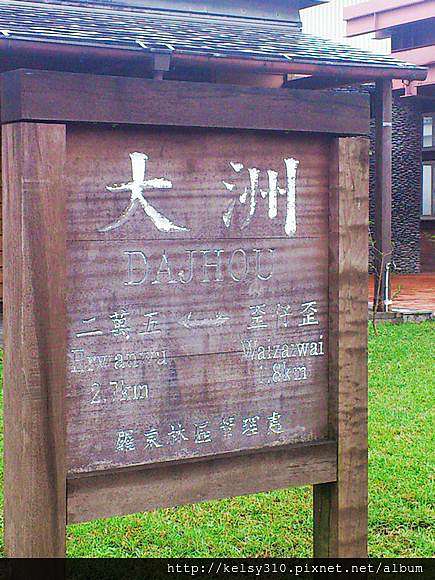 大洲
DAJHOU
二萬五 ←→ 歪仔歪
Erwanwu Waizaiwai
2.7km 1.8km
羅東林區管理處
http://kelsy310.pixnet.net/album